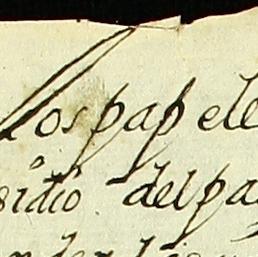 los papele
sidio del pa